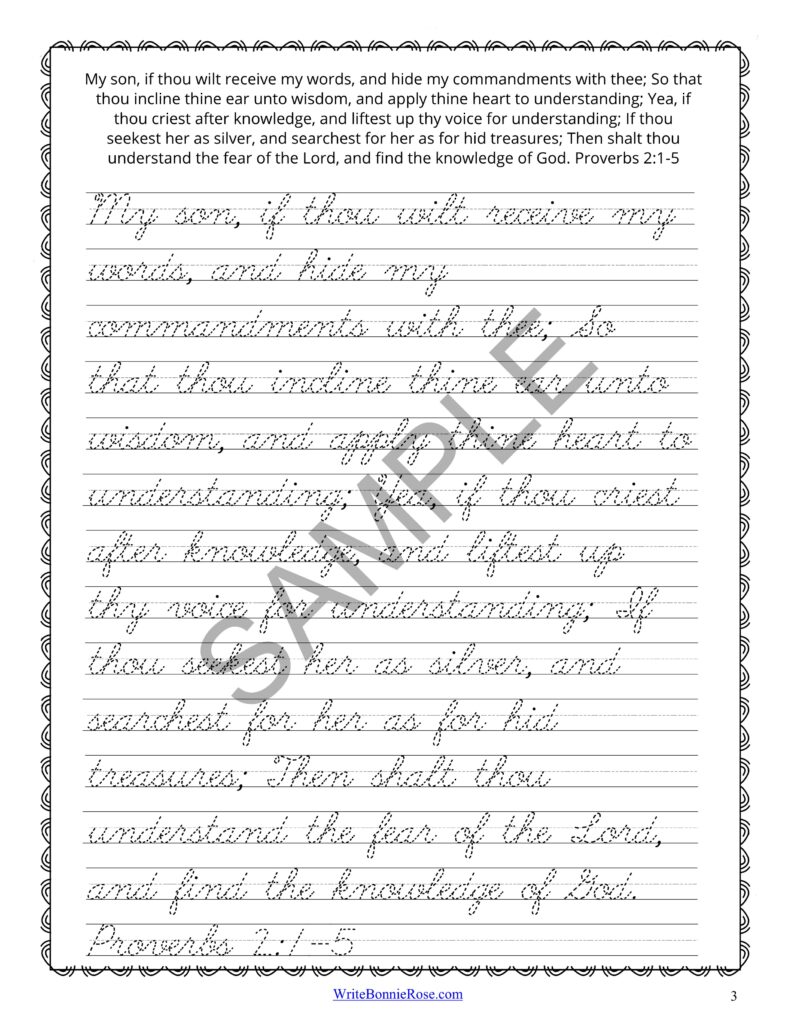 My son, if thou wilt receive my words, and hide my commandments with thee; So that
thou incline thine ear unto wisdom, and apply thine heart to understanding; Yea, if
thou criest after knowledge, and liftest up thy voice for understanding; If thou
seekest her as silver, and searchest for her as for hid treasures; Then shalt thou
understand the fear of the Lord, and find the knowledge of God. Proverbs 2:1-5
My son, if thou wilt receive my
words, and hide my
commandments with thee; So
that thou incline thine ear unto
wisdom, and apply thine heart to
understanding; Yea, if thou criest
after knowledge, and liftest up
thy voice for understanding; If
thou seekest her as silver, and
searchest for her as for hid
treasures; Then shalt thou
understand the fear of the Lord,
and find the knowledge of God.
Proverbs 2:1-5
SAMPLE
WriteBonnieRose.com
3